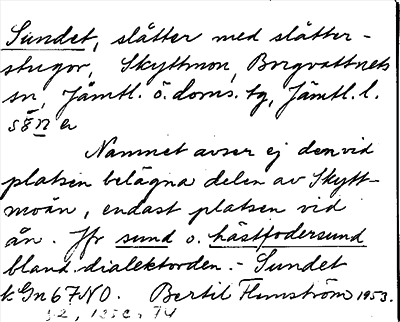 Sundet, slåtter med slåtter-
stugor, Skyttmon, Borgvattnets
sn, Jämtl. ö. doms. tg, Jämtl. l.
Namnet avser ej den vid
platsen belägna delen av Skytt-
moån, endast platsen vid
ån. Jfr sund o. hästfodersund
bland dialektorden. - Sundet
k Gn 67 NO. Bertil Flemström 1953.